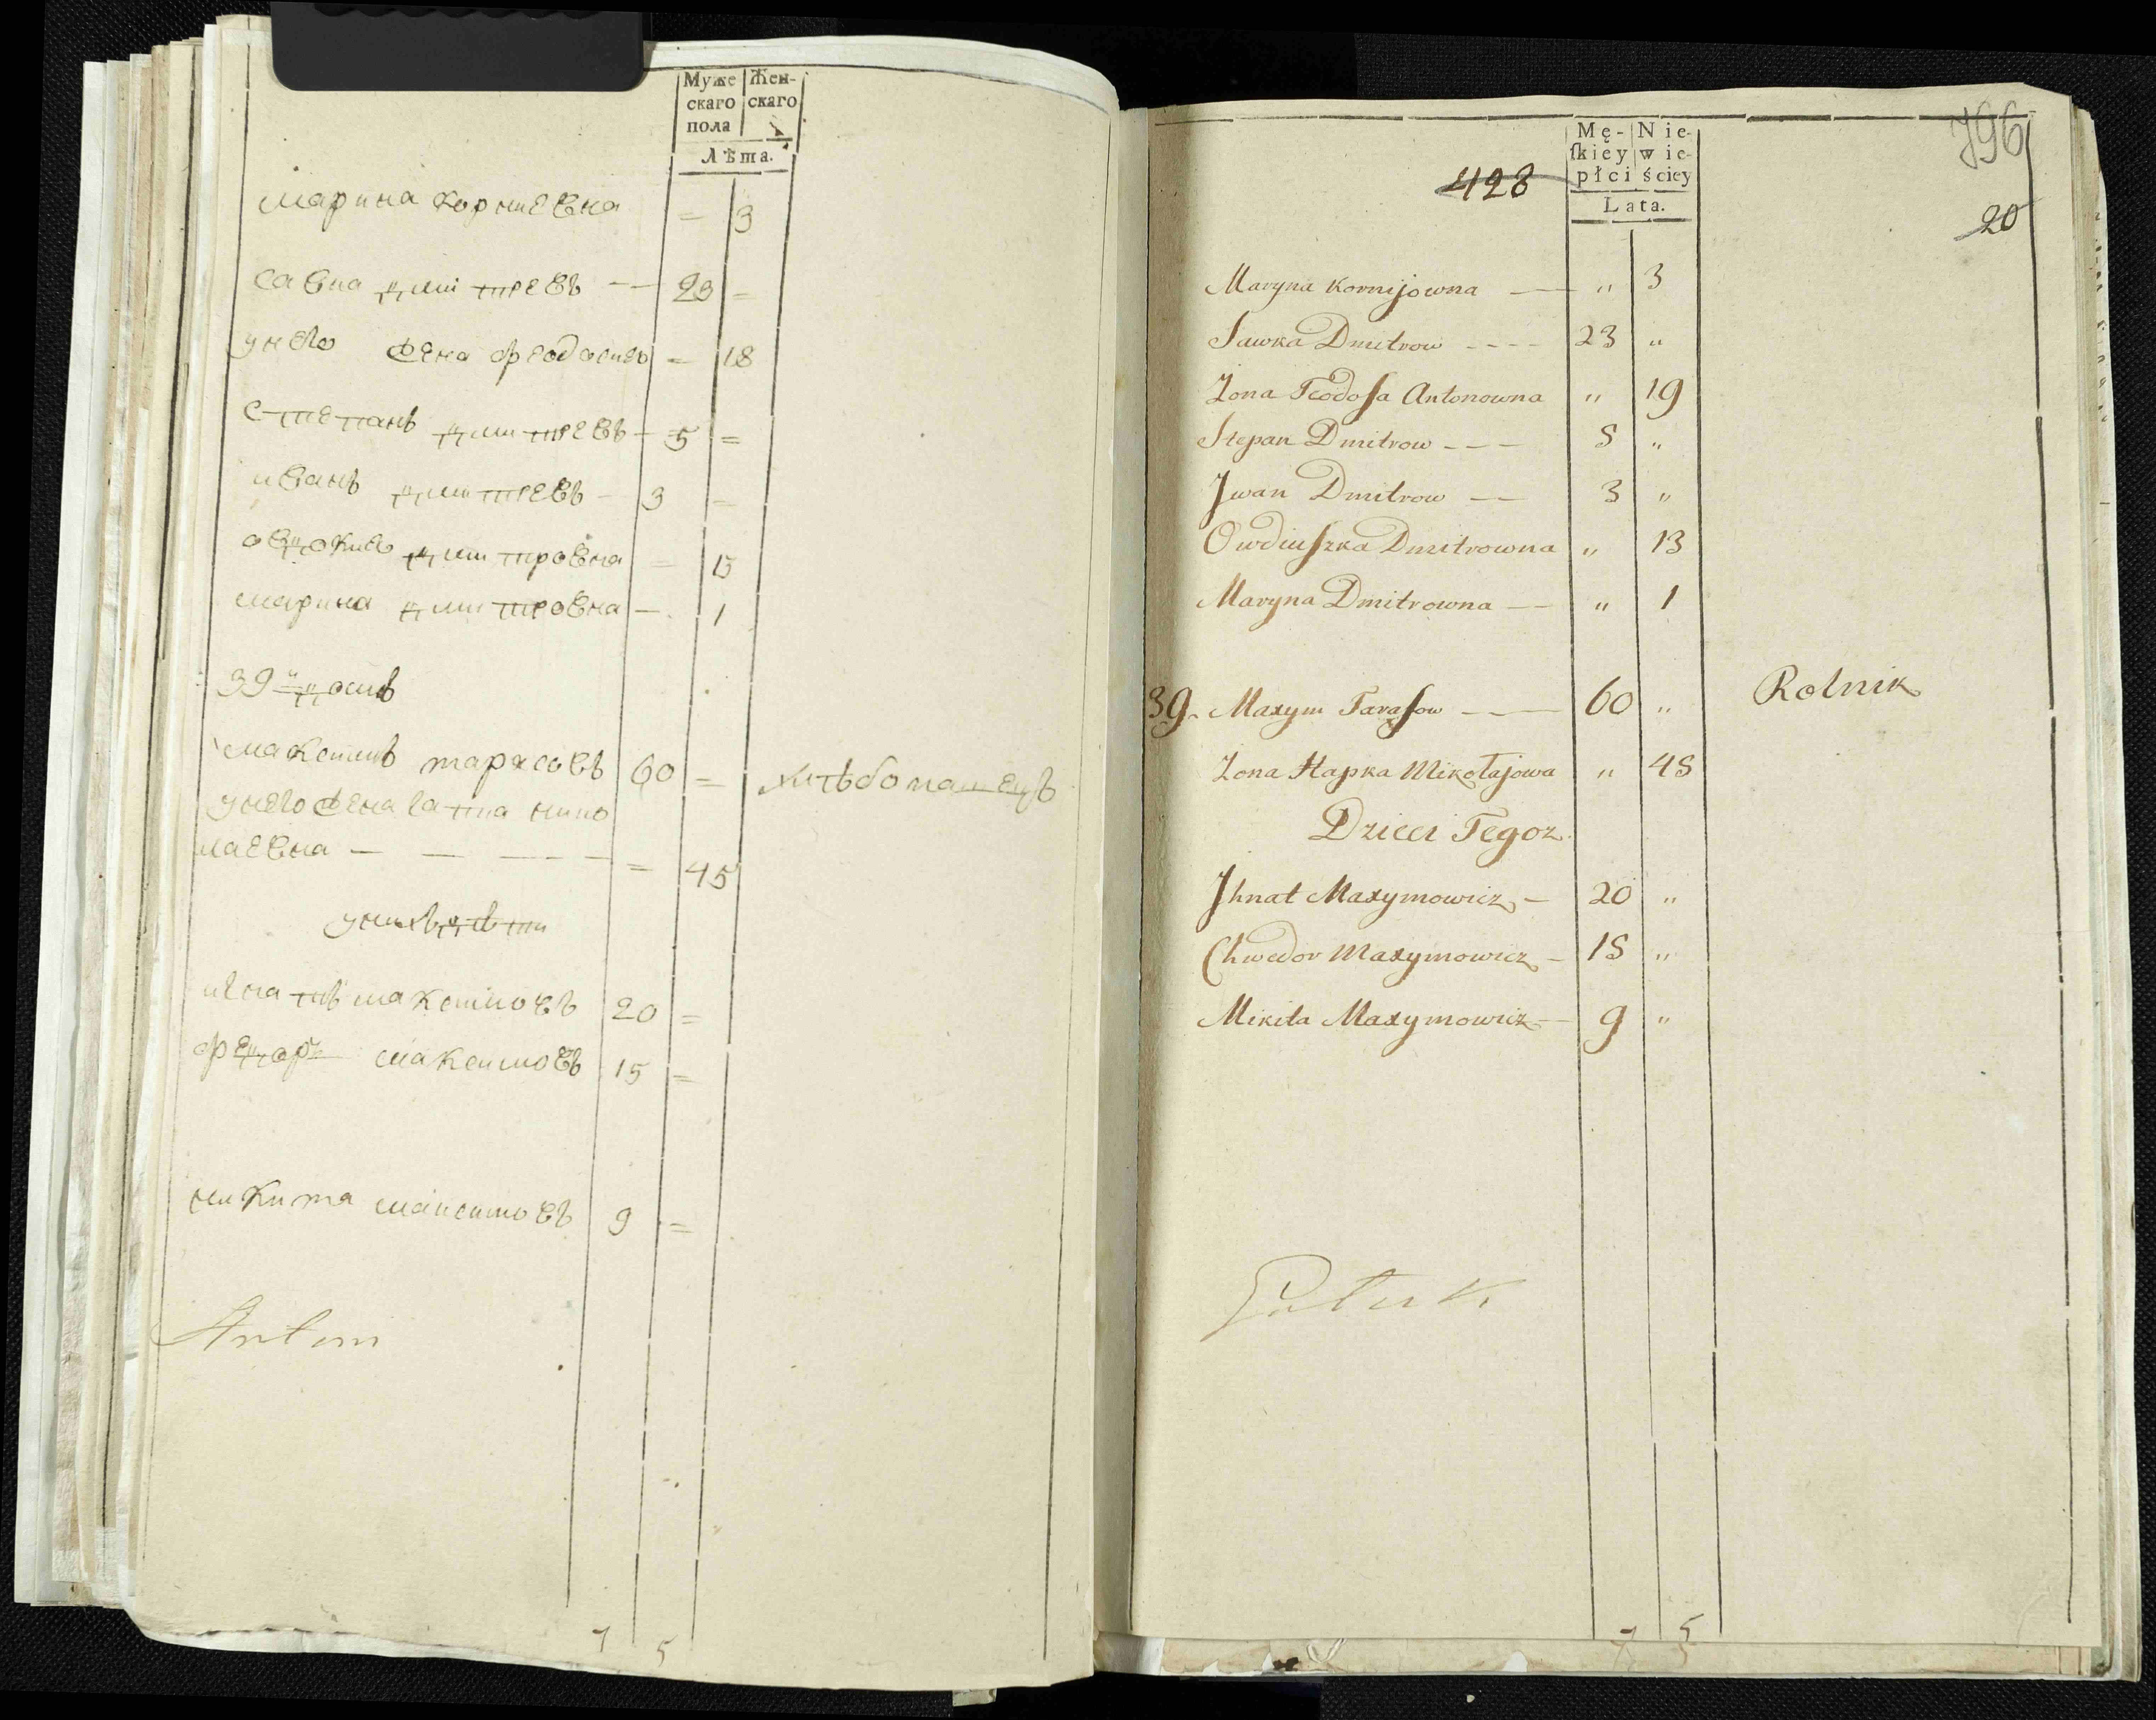 Муже Жен-
скаго скаго
пола
Лѣта.
марина корниевна = 3
савка дмитревъ — 23 =
унего жена феодосия = 18
степанъ дмитревъ - 5 =
иванъ дмитревъ - 3 =
овдокия дмитровна = 13
марина дмитровна — 1
39й домъ
максимъ тарасовъ 60 = хлѣбопашецъ
унего жена гапка нико
лаевна — — — — = 45
унихъ дѣти
игнатъ максимовъ 20 =
федоръ максимовъ 15 =
никита максимовъ 9 =
7 5
796
428
20
Mę- Nie-
ſkiey wie-
płci ściey
Lata.
Maryna Kornijowna — " 3
Sawka Dmitrow ---- 23 "
Żona Teodosa Antonowna " 19
Stepan Dmitrow --- 5 "
Jwan Dmitrow -- 3 "
Owdiuszka Dmitrowna " 13
Maryna Dmitrowna — " 1
39. Maxym Tarasow — 60 " Rolnik
Żona Hapka Mikołajowa " 45
Dzieci Tegoż.
Jhnat Maxymowicz — 20 "
Chwedor Maxymowicz — 15 "
Mikita Maxymowicz — 9 "
7 5